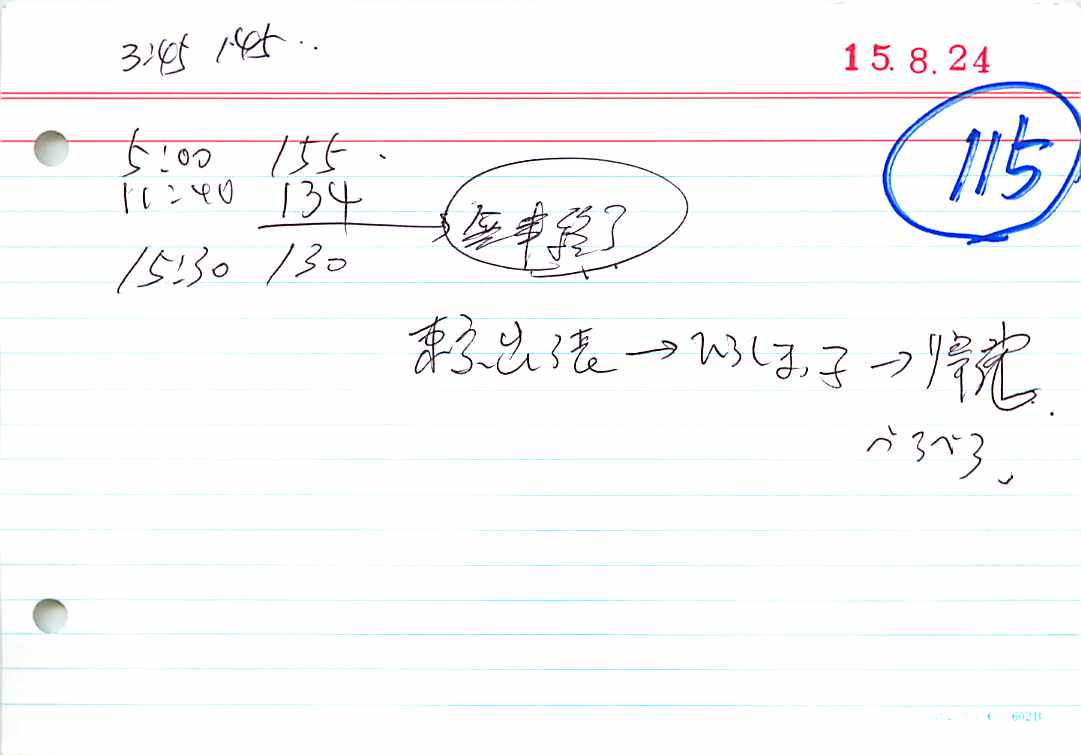 3:45 145..
15.8.24
115
5:00 155.
11:40 134
無事終了
15:30 130
東京出張→ひろしま,子→帰宅.
べろべろ、